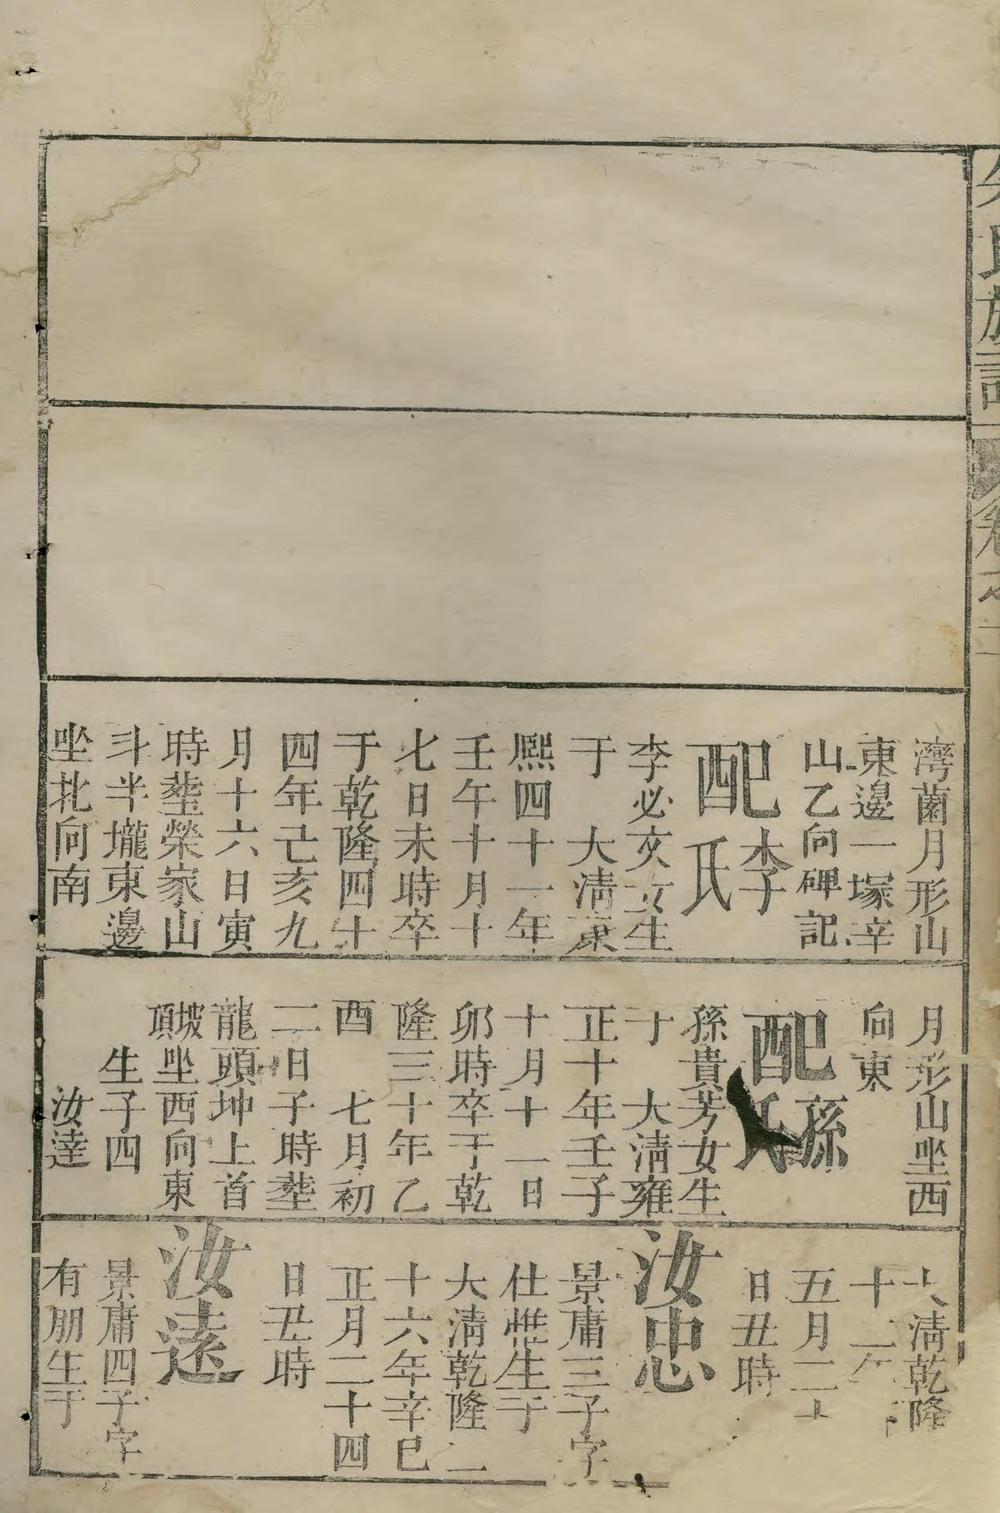 氏族譜
卷之二
灣菌月形山
東邊一塚辛
山乙向碑記
配李氏
李必亥女生
于　大淸康
熙四十一年
壬午十月十
七日未時卒
于乾隆四十
四年己亥九
月十六日寅
時塟榮家山
斗半壠東邊
坐北向南
月形山坐西
向東
配孫氏
孫貴芳女生
于　大淸雍
正十年壬子
十月十一日
卯時卒于乾
隆三十年乙
酉　七月初
二日子時塟
龍頭坤上首
坡頂坐西向東
生子四
汝達
大淸乾隆
十二年
五月二十
日丑時
汝忠
景庸三子字
仕惟生于
大淸乾隆二
十六年辛巳
正月二十四
日丑時
汝遠
景庸四子字
有朋生于